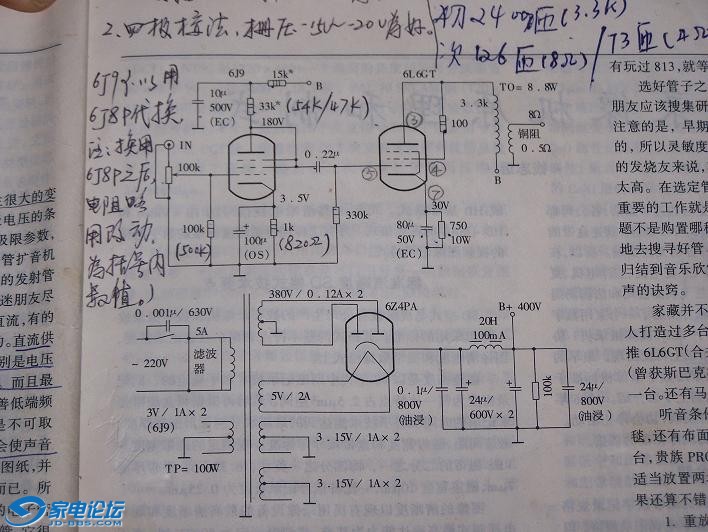 2、四极接法,栅压-15V~-20V为好。
初2400匝(3.3K)
次126匝(8Ω)/73匝(4Ω
6J9可以用
6J8P代换,
注:换用
6J8P之后,
电阻略
用改动,
为括号内
数值。)
6J9
15k*
B
10μ
500V
(EC)
33k*
(54K/47K)
180V
IN
100k
0.22μ
3.5V
100k
(500K)
100μ
(OS)
1k
(820Ω)
330k
6L6GT
TO=8.8W
3.3k
8Ω
100
铜阻
0.5Ω
B
③
⑤
④
⑦
30V
80μ
50V
(EC)
750
10W
0.001μ/630V
5A
~220V
滤波
器
380V/0.12A×2
6Z4PA
5V/2A
3V/1A×2
(6J9)
TP=100W
3.15V/1A×2
3.15V/1A×2
B+ 400V
20H
100mA
0.1μ/
800V
(油浸)
24μ/
600V×2
100k
24μ/
800V
(油浸)
很大的变
电压的条
极限参数,
管扩音机
的发射管
迷朋友尽
直流,有的
。直流供
别是电压
,而且最
善低端频
是不可取
会使声音
图纸,并
而已。所
有玩过813,就等
选好管子之
朋友应该搜集研
注意的是,早期
的,所以灵敏度
的发烧友来说,
太高。在选定管
重要的工作就是
题不是购置哪种
地去搜寻好管.
归结到音乐欣赏
声的诀窍。
家藏并不
人打造过多台
推6L6GT(合并
(曾获斯巴克
一台。还有马
听音条件
毯,还有布面
台,贵族PRO
适当放置两
果还算不错
1.重放
家电论坛
jd-bbs.com